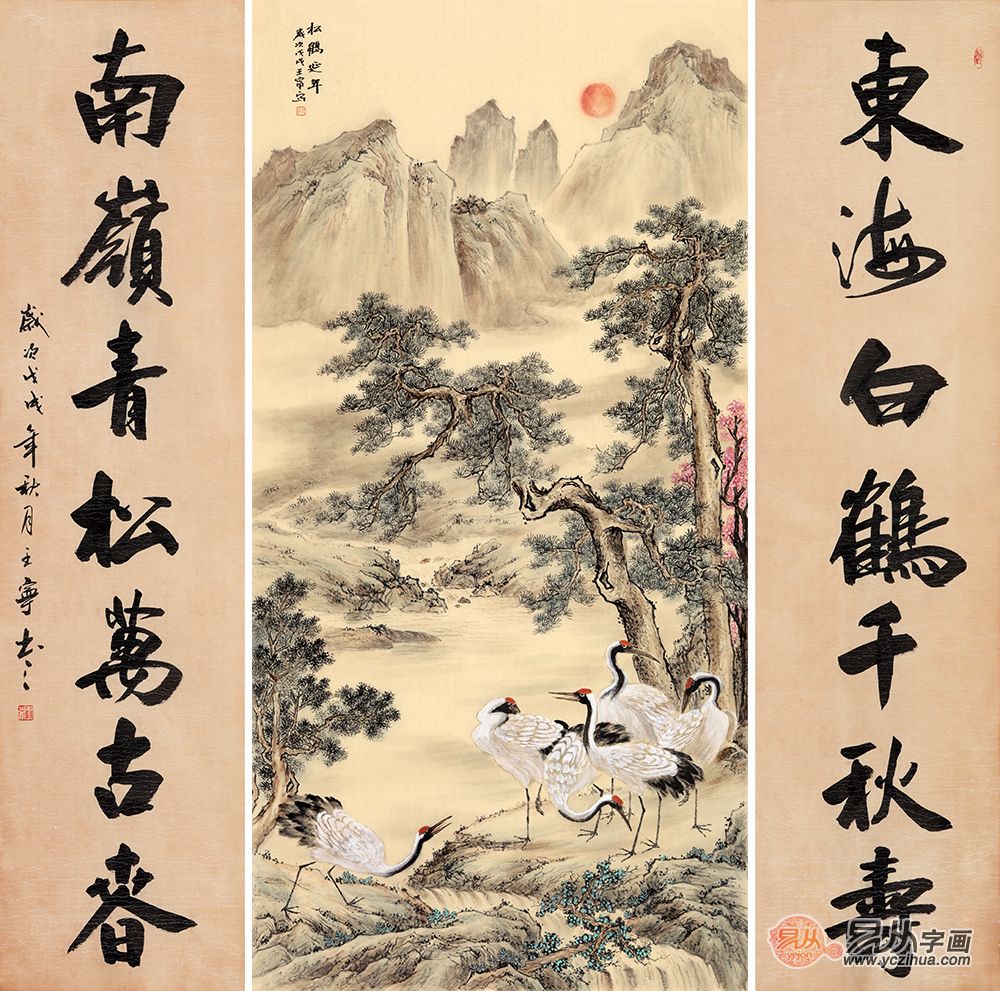 東海白鶴千秋壽
松鶴延年
歲次戊戌王寧寫
南嶺青松萬古春
歲次戊戌年秋月王寧書
易从字画
yejon
www.yczihua.com